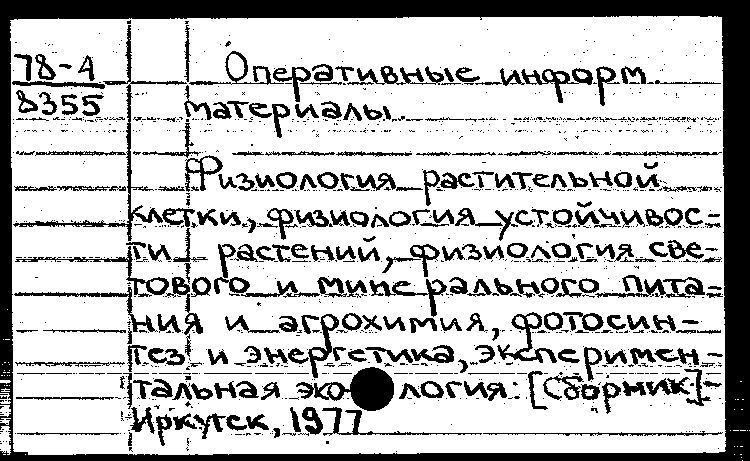 78-4
8355
Оперативные информ.
материалы.
Физиология растительной
клетки, физиология устойчивос-
ти растений, физиология све-
тового и минерального пита-
ния и агрохимия, фотосин-
тез и энергетика, эксперимен-
тальная экология: [Сборник]-
Иркутск, 1977.